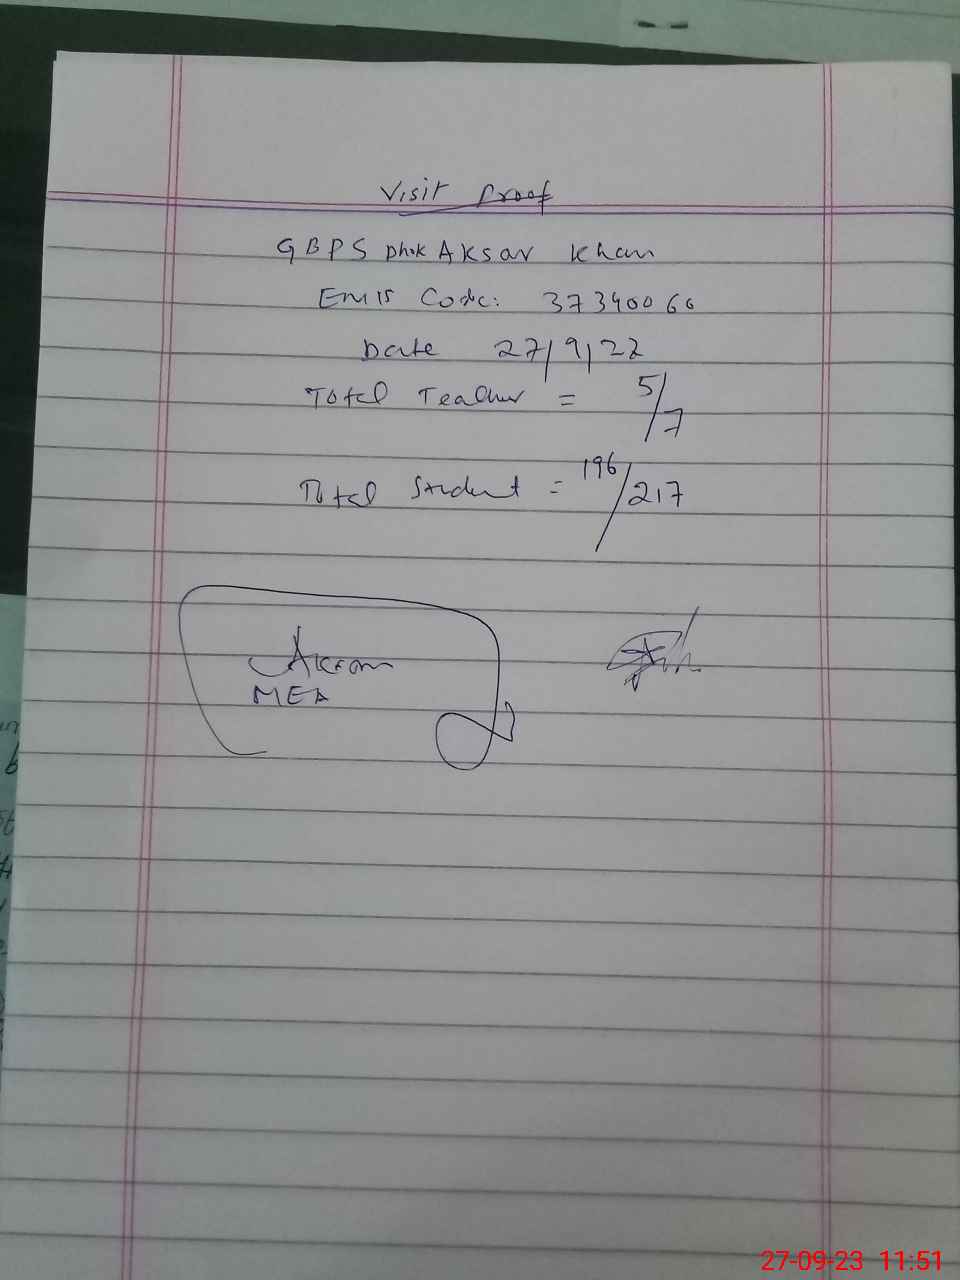 Visit Proof
GBPS Dhok Aksar Khan
Emis Code: 37340060
Date 27/9/22
Total Teacher = 5/7
Total Student = 196/217
Akram
MEA
27-09-23 11:51